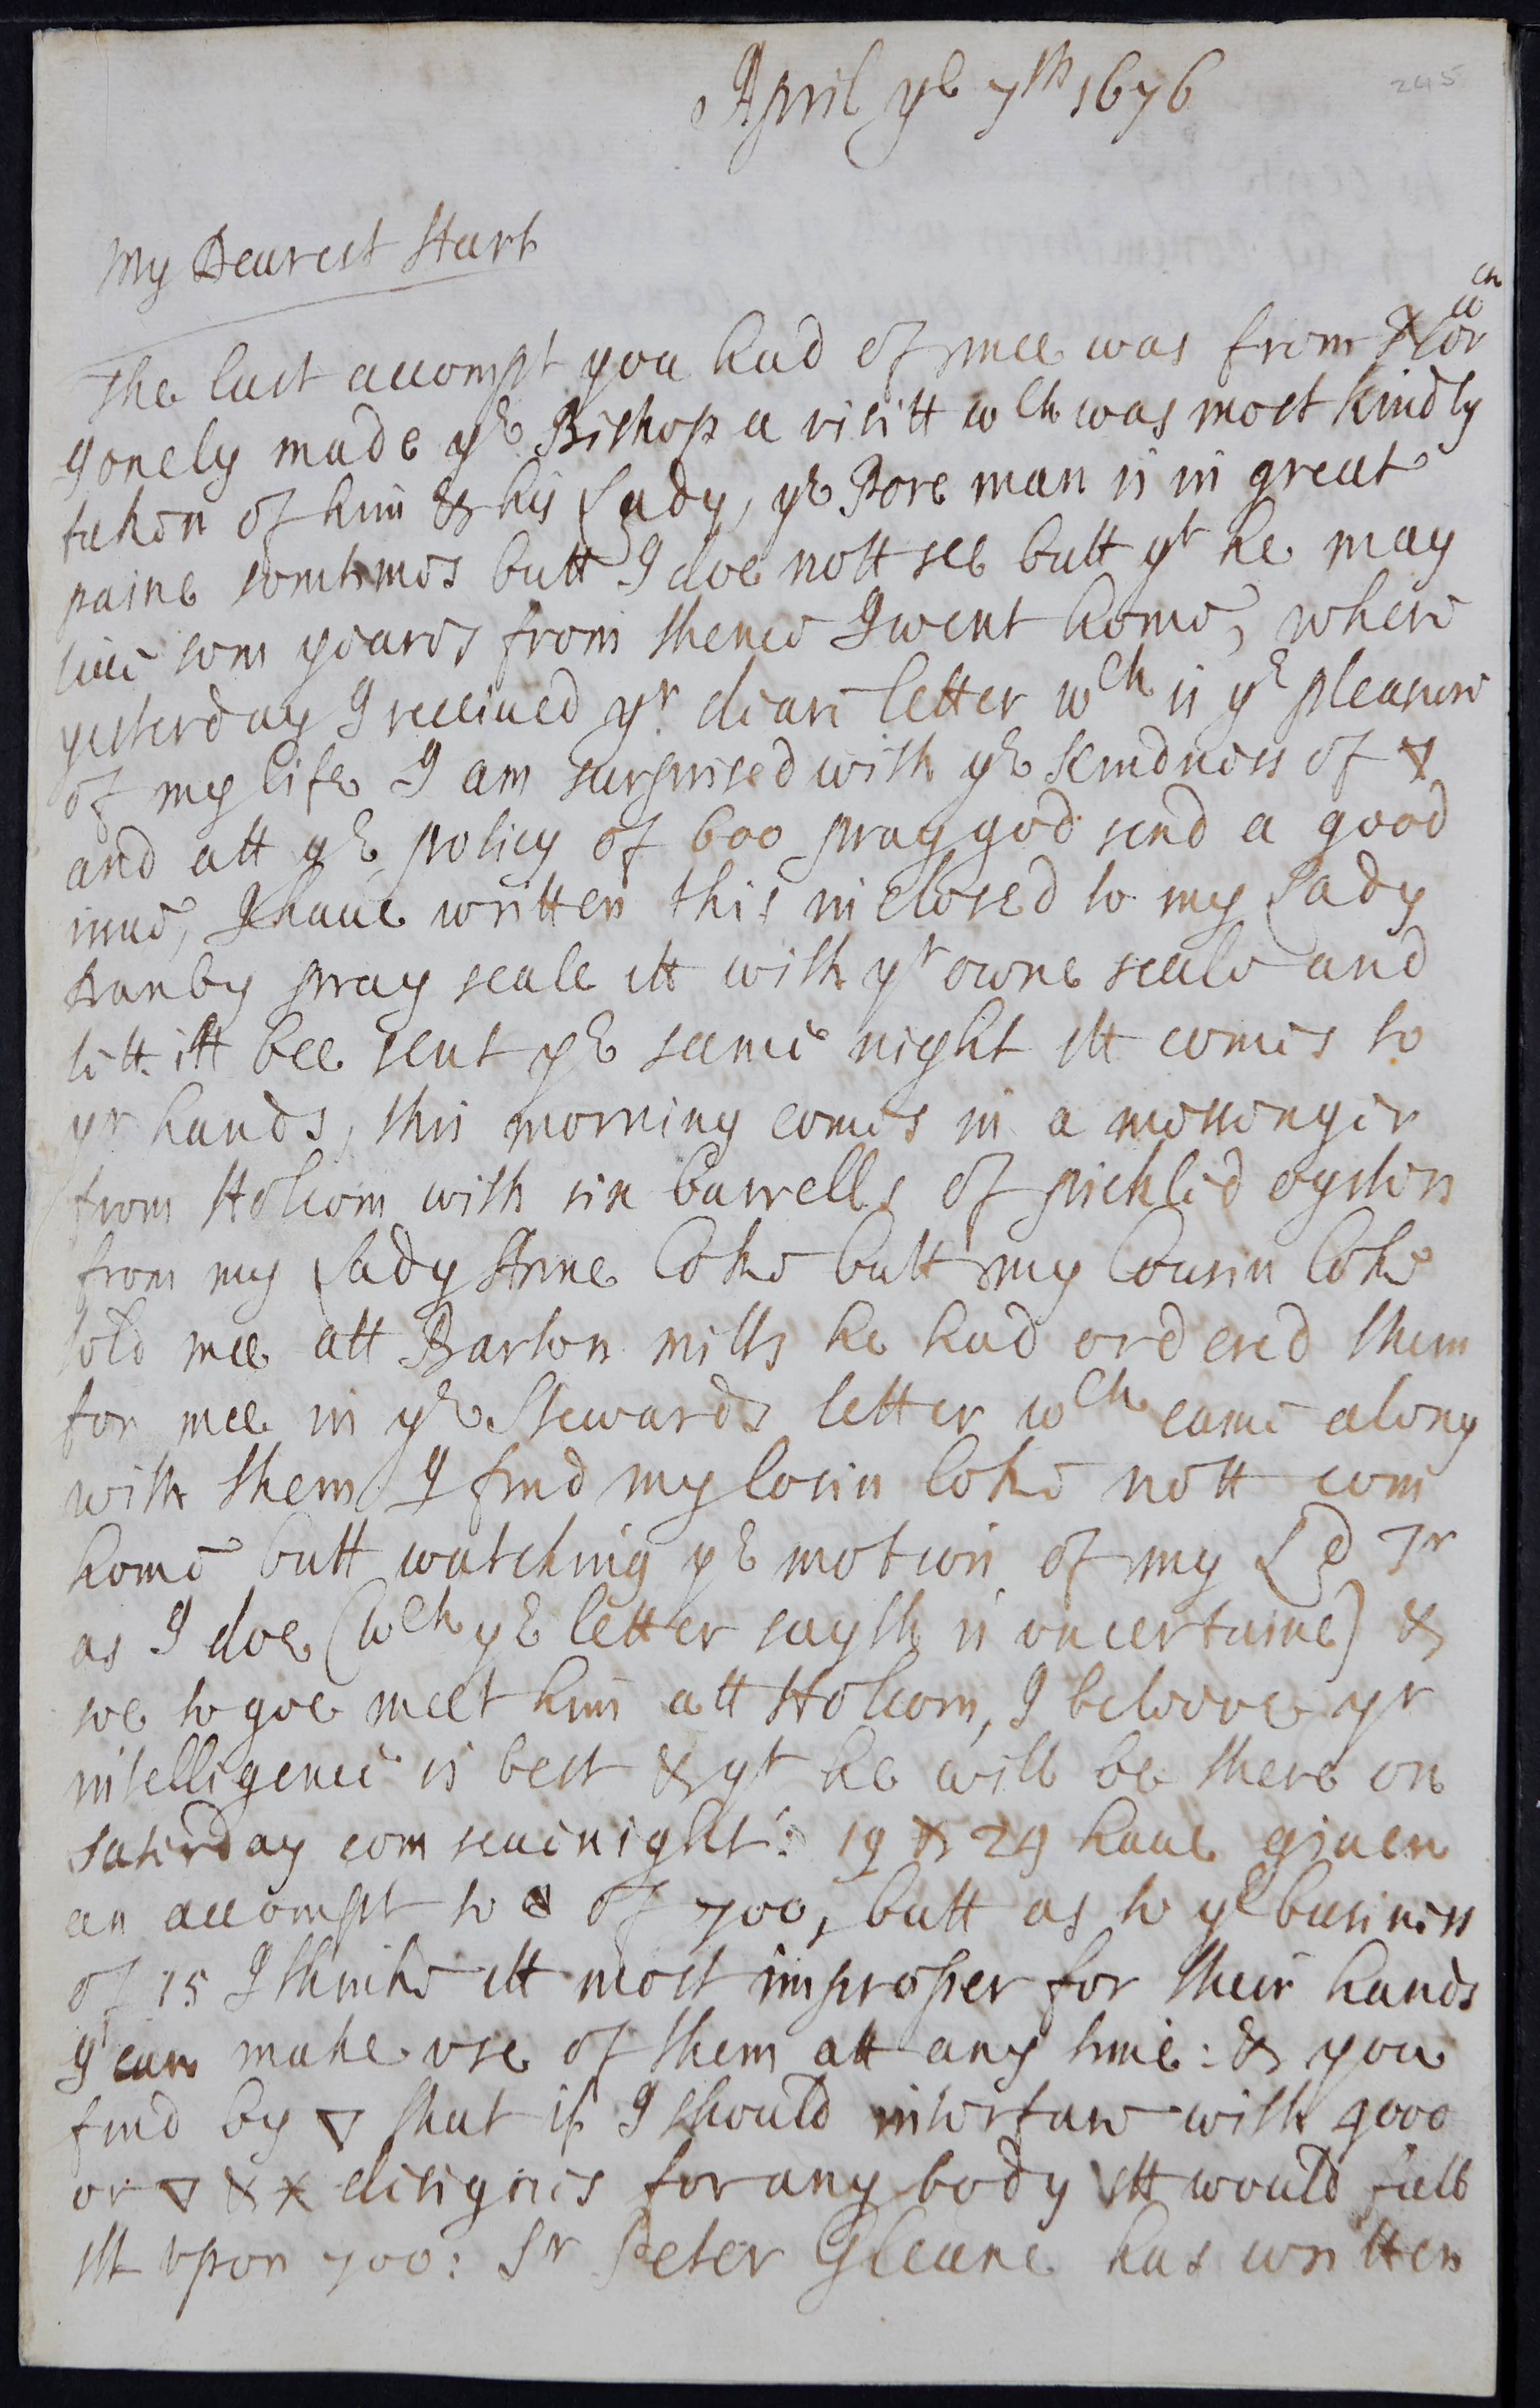 April ye 7th 1676
245
My Dearest Hart
The last accompt you had of mee was from Norw
ch
I onely made ye Bishop a visitt wch was most kindly
taken of him & his Lady, ye Pore man is in great
paine somtimes butt I doe nott see butt yt he may
live som yeares from thence I went home, where
yesterday I received yr deare letter wch is ye pleasure
of my life I am surprised with ye kindness of
and att ye policy of 600 pray god send a good
I have written this inclosed to my Lady
Danby pray seale itt with yr owne seale and
lett itt bee sent ye same night itt comes to
yr hands, this morning comes in a messenger
from Holcom with six barrells of pickled oysters
from my Lady Anne Coke butt my Cousin Coke
told mee att Barton mills he had ordered them
for mee in ye Stewards letter wch came along
with them I find my Cosin Coke nott com
home butt watching ye motion of my Ld Tr
as I doe (wch ye letter sayth is uncertaine) &
soe to goe meet him att Holcom, I beleeve yr
intelligence is best & yt he will be there on
saterday com sevenight: 19 & 29 have given
an accompt to of 700, butt as to ye business
of 15 I thinke itt most improper for their hands
I can make use of them att any time: & you
find by ▽ that if I should interfare with 900
or ▽ & x designes for any body itt would fall
itt upon 700: Sr Peter Gleane has written